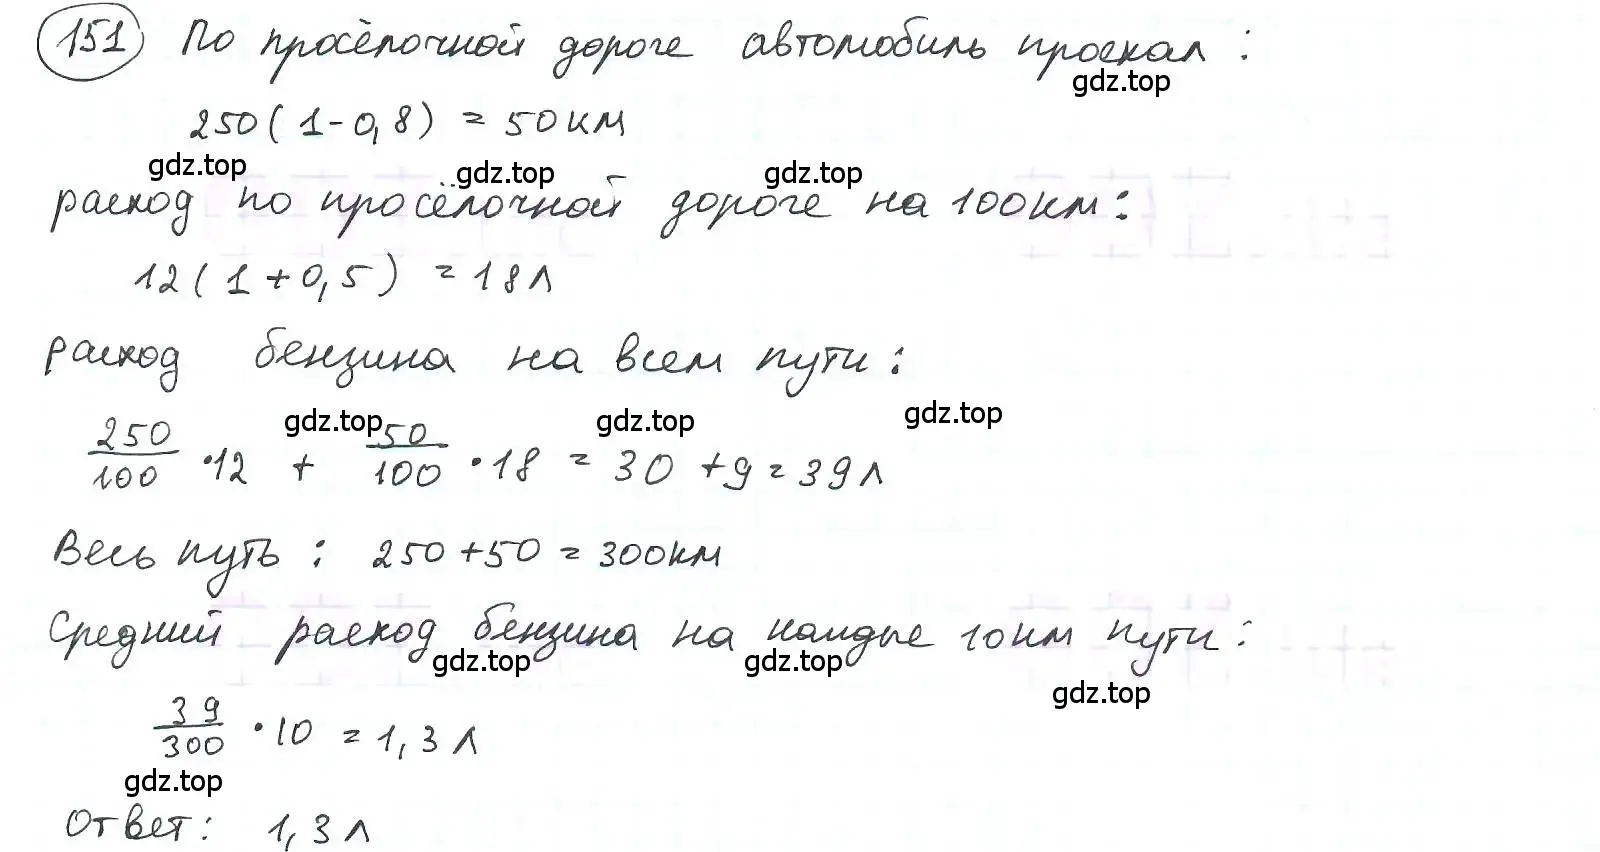 151 По просёлочной дороге автомобиль проехал:
gdz.top
250(1-0,8) = 50км
gdz.top gdz.top gdz.top
расход по просёлочной дороге на 100км:
12(1+0,5) = 18л
расход бензина на всем пути:
gdz.top gdz.top gdz.top
250/100 · 12 + 50/100 · 18 = 30 + 9 = 39л
Весь путь: 250+50 = 300км
Средний расход бензина на каждые 10км пути:
gdz.top gdz.top gdz.top
39/300 · 10 = 1,3л
gdz.top
Ответ: 1,3л